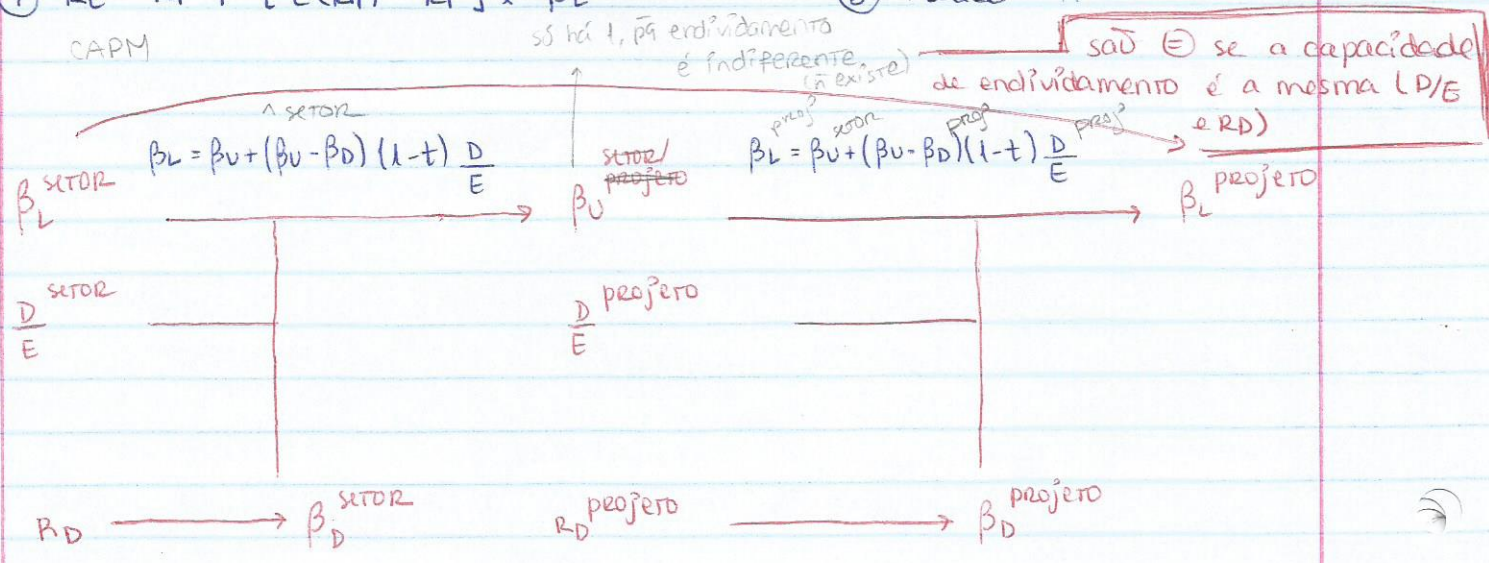 CAPM
só há 1, pq endividamento
é indiferente
(ñ existe)
são ⊜ se a capacidade
de endividamento é a mesma (D/E
e RD)
^ SETOR
βL = βU + (βU - βD) (1-t) D/E
proj setor proj proj
βL = βU + (βU - βD)(1-t) D/E
βL SETOR
βU setor/
projeto
βL projeto
D/E SETOR
D/E projeto
RD → βD SETOR
RD projeto → βD projeto